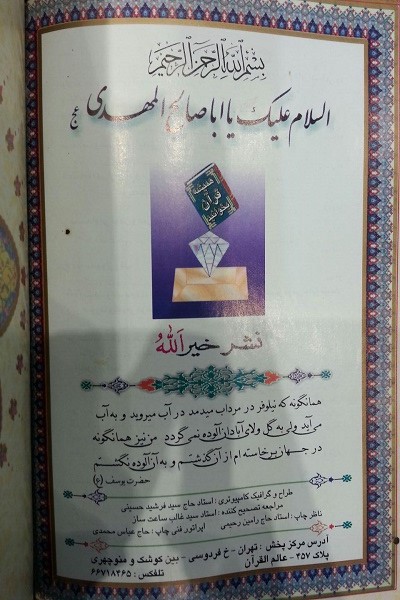 بسم الله الرحمن الرحیم
السلام علیک یا اباصالح المهدی عج
همیشه
قرآن
بخوانیم
نشر خیر الله
همانگونه که نیلوفر در مرداب میدمد در آب میروید و به آب
می آید ولی به گل و لای آباد از آلوده نمی گردد من نیز همانگونه
در جهاز برخاسته ام از آن گذشتم و به آن آلوده نگشتم
حضرت یوسف
طراح و گرافیک کامپیوتری : استاد حاج سید فرشید حسینی
مراجعه تصحیح کننده : استاد سید غالب ساعت ساز
ناظر چاپ : استاد حاج رامین رحیمی اپراتور فنی چاپ : حاج عباس محمدی
آدرس مرکز پخش : تهران - خ فردوسی - بین کوشک و منوچهری
پلاک ۳۵۷ - عالم القرآن تلفکس : ۶۶۷۱۸۳۶۵